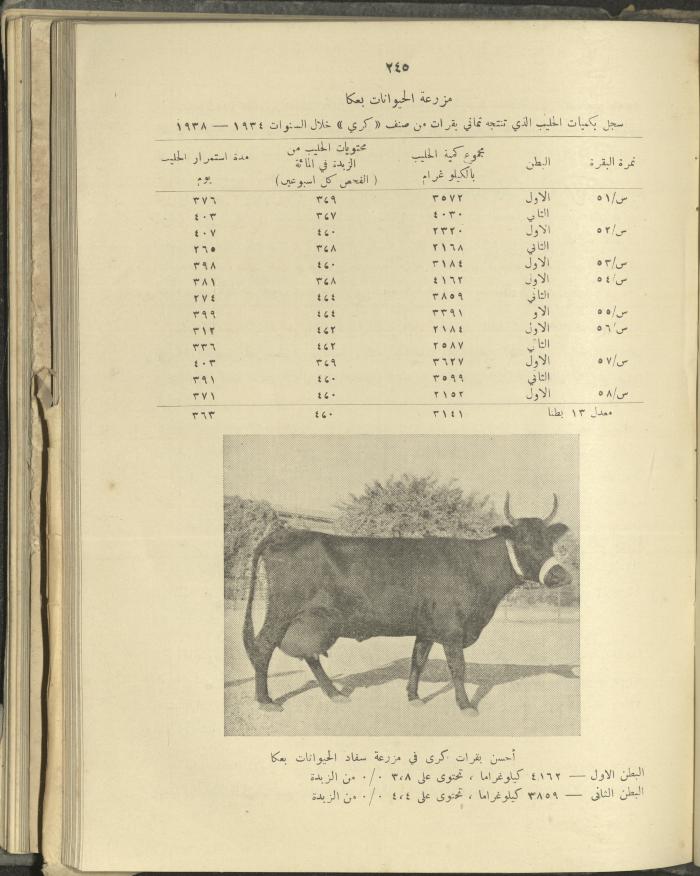 ٢٤٥
مزرعة الحيوانات بعكا
سجل بكميات الحليب الذي تنتجه ثماني بقرات من صنف «كري» خلال السنوات ١٩٣٤ — ١٩٣٨
نمرة البقرة البطن مجموع كمية الحليب بالكيلو غرام محتويات الحليب من الزبدة في المائة (الفحص كل اسبوعين) مدة استمرار الحليب يوم
س/٥١ الاول ٣٥٧٢ ٣،٩ ٣٧٦
الثاني ٤٠٣٠ ٣،٧ ٤٠٣
س/٥٢ الاول ٢٣٢٠ ٤،٠ ٤٠٧
الثاني ٢١٦٨ ٣،٨ ٢٦٥
س/٥٣ الاول ٣١٨٤ ٤،٠ ٣٩٨
س/٥٤ الاول ٤١٦٢ ٣،٨ ٣٨١
الثاني ٣٨٥٩ ٤،٤ ٢٧٤
س/٥٥ الاو ٣٣٩١ ٤،٤ ٣٩٩
س/٥٦ الاول ٢١٨٤ ٤،٢ ٣١٢
الثاني ٢٥٨٧ ٤،٢ ٣٣٦
س/٥٧ الاول ٣٦٢٧ ٣،٩ ٤٠٣
الثاني ٣٥٩٩ ٤،٠ ٣٩١
س/٥٨ الاول ٢١٥٢ ٤،٠ ٣٧١
معدل ١٣ بطنا ٣١٤١ ٤،٠ ٣٦٣
أحسن بقرات كرى في مزرعة سفاد الحيوانات بعكا
البطن الاول — ٤١٦٢ كيلوغراما ، تحتوى على ٣،٨ ٠/٠ من الزبدة
البطن الثانى — ٣٨٥٩ كيلوغراما ، تحتوى على ٤،٤ ٠/٠ من الزبدة